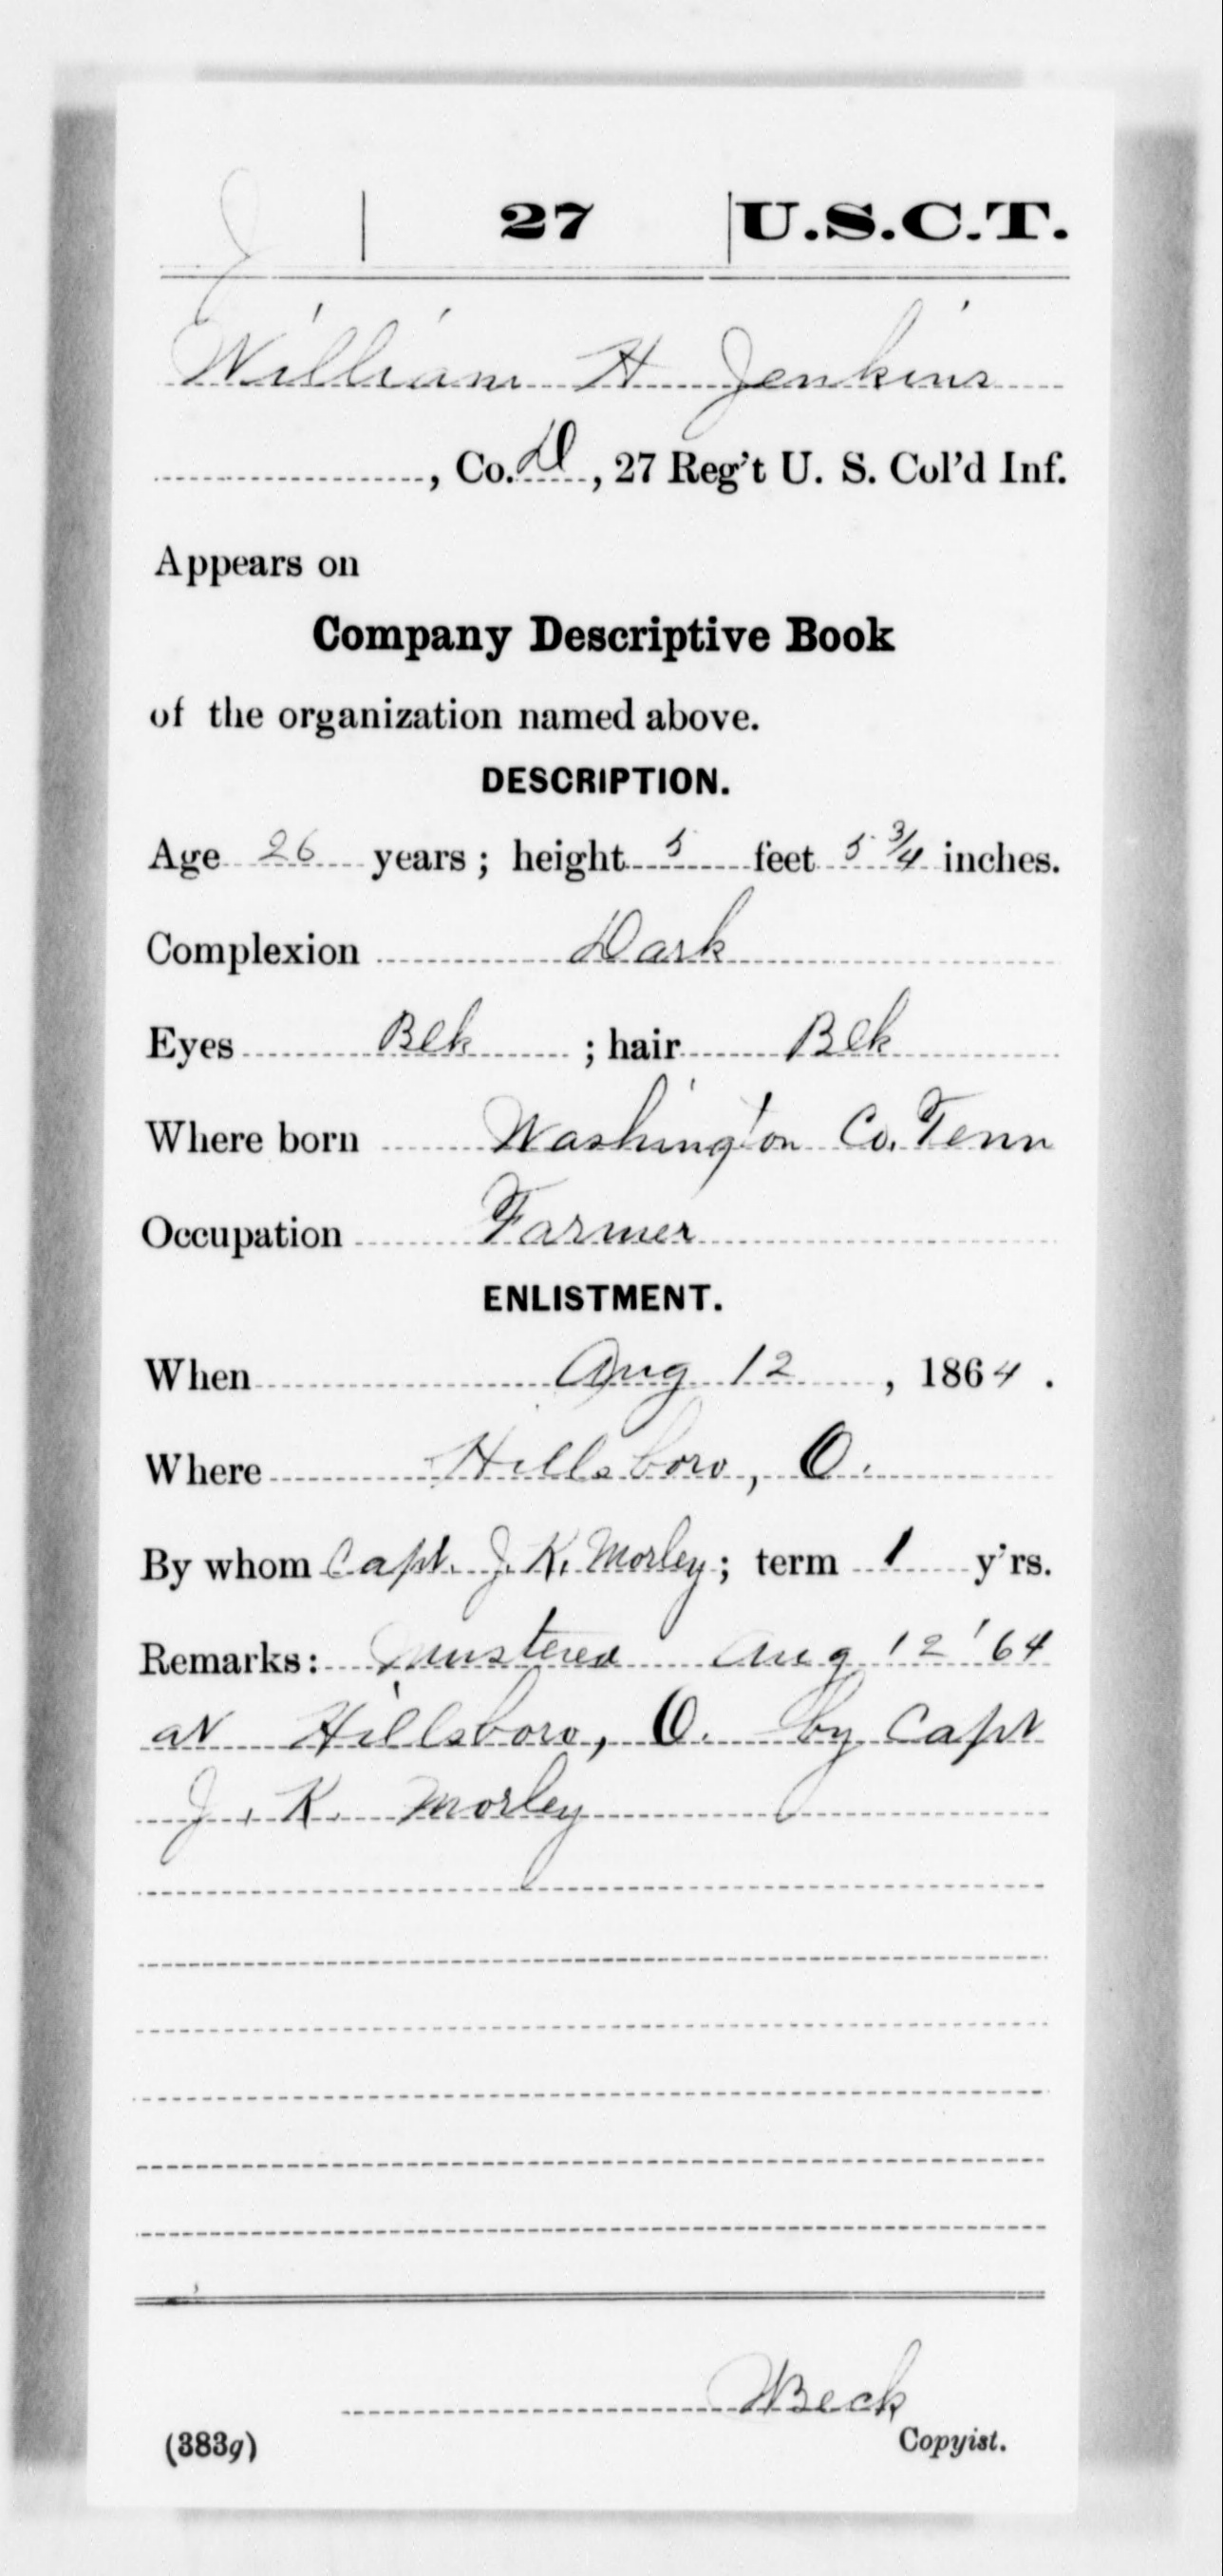 J | 27 | U.S.C.T.
William H Jenkins
, Co. D, 27 Reg't U. S. Col'd Inf.
Appears on
Company Descriptive Book
of the organization named above.
DESCRIPTION.
Age 26 years; height 5 feet 5 3/4 inches.
Complexion Dark
Eyes Blk ; hair Blk
Where born Washington Co. Tenn
Occupation Farmer
ENLISTMENT.
When Aug 12, 1864.
Where Hillsboro, O.
By whom Capt. J. K. Morley; term 1 y'rs.
Remarks: Mustered Aug 12 '64
at Hillsboro, O. by Capt
J. K. Morley
Beck
(383g) Copyist.